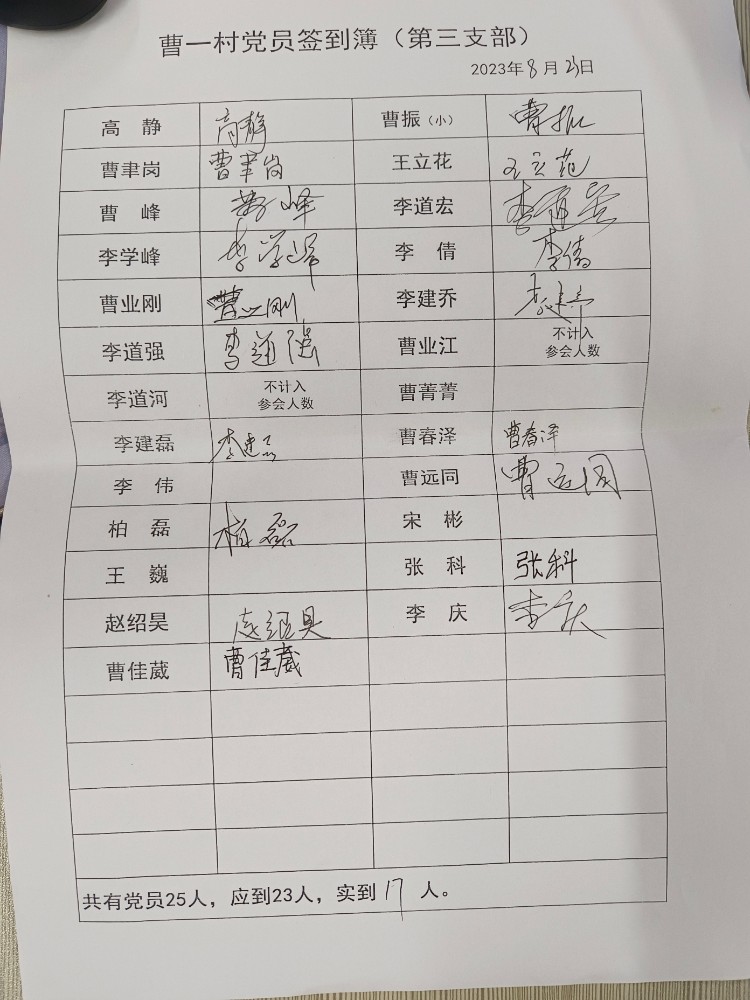 曹一村党员签到簿（第三支部）
2023年8月23日
高 静 高静 曹振（小） 曹振
曹聿岗 曹聿岗 王立花 王立花
曹 峰 曹峰 李道宏 李道宏
李学峰 李学峰 李 倩 李倩
曹业刚 曹业刚 李建乔 李建乔
李道强 李道强 曹业江 不计入
参会人数
李道河 不计入 曹菁菁
参会人数
李建磊 李建磊 曹春泽 曹春泽
李 伟 曹远同 曹远同
柏 磊 柏磊 宋 彬
王 巍 张 科 张科
赵绍昊 赵绍昊 李 庆 李庆
曹佳葳 曹佳葳
共有党员25人，应到23人，实到17人。